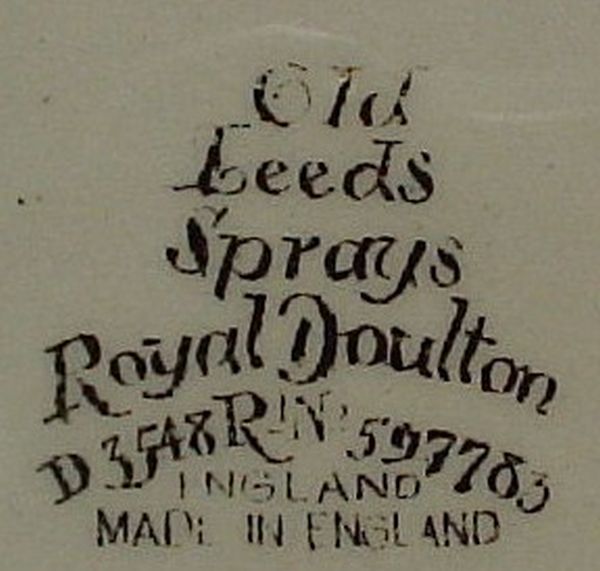 Old
Leeds
Sprays
Royal Doulton
D3548 RᵈNº 597783
ENGLAND
MADE IN ENGLAND